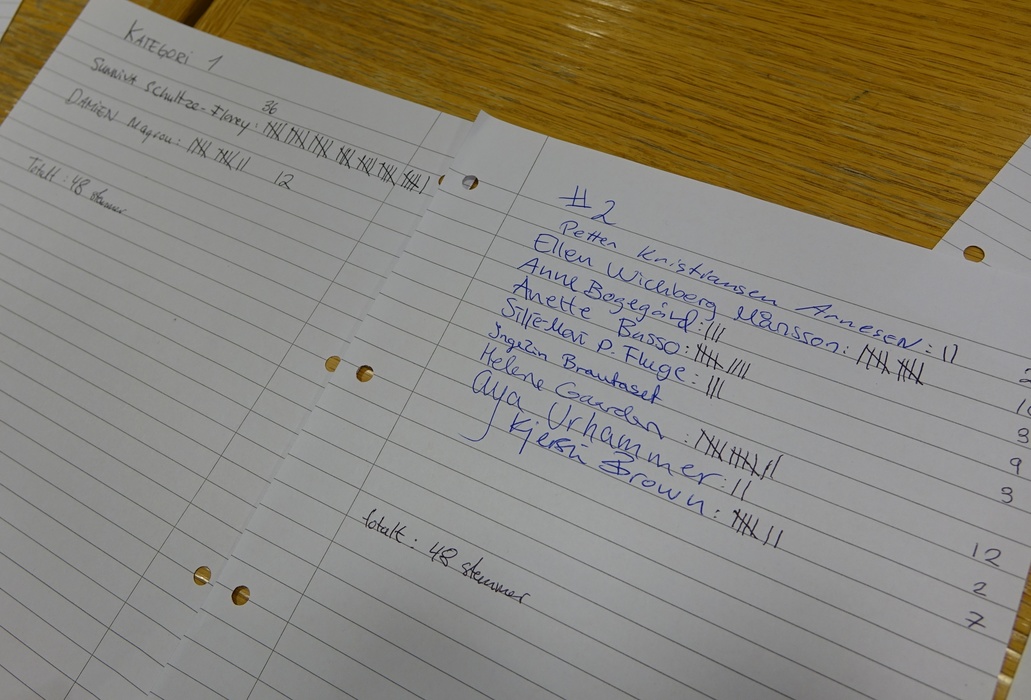 KATEGORI 1
Sunniva Schultze-Florey: 36
DAMIEN Magrou: 12
Totalt: 48 stemmer
#2
Petter Kristiansen Annesen: 2
Ellen Wichberg Månsson: 10
Anne Bogegård: 3
Anette Basso: 9
Silje-Mari P. Fluge: 3
Ingelin Brautaset
Helene Gaarden: 12
Aya Urhammer: 2
Kjersti Brown: 7
totalt: 48 stemmer